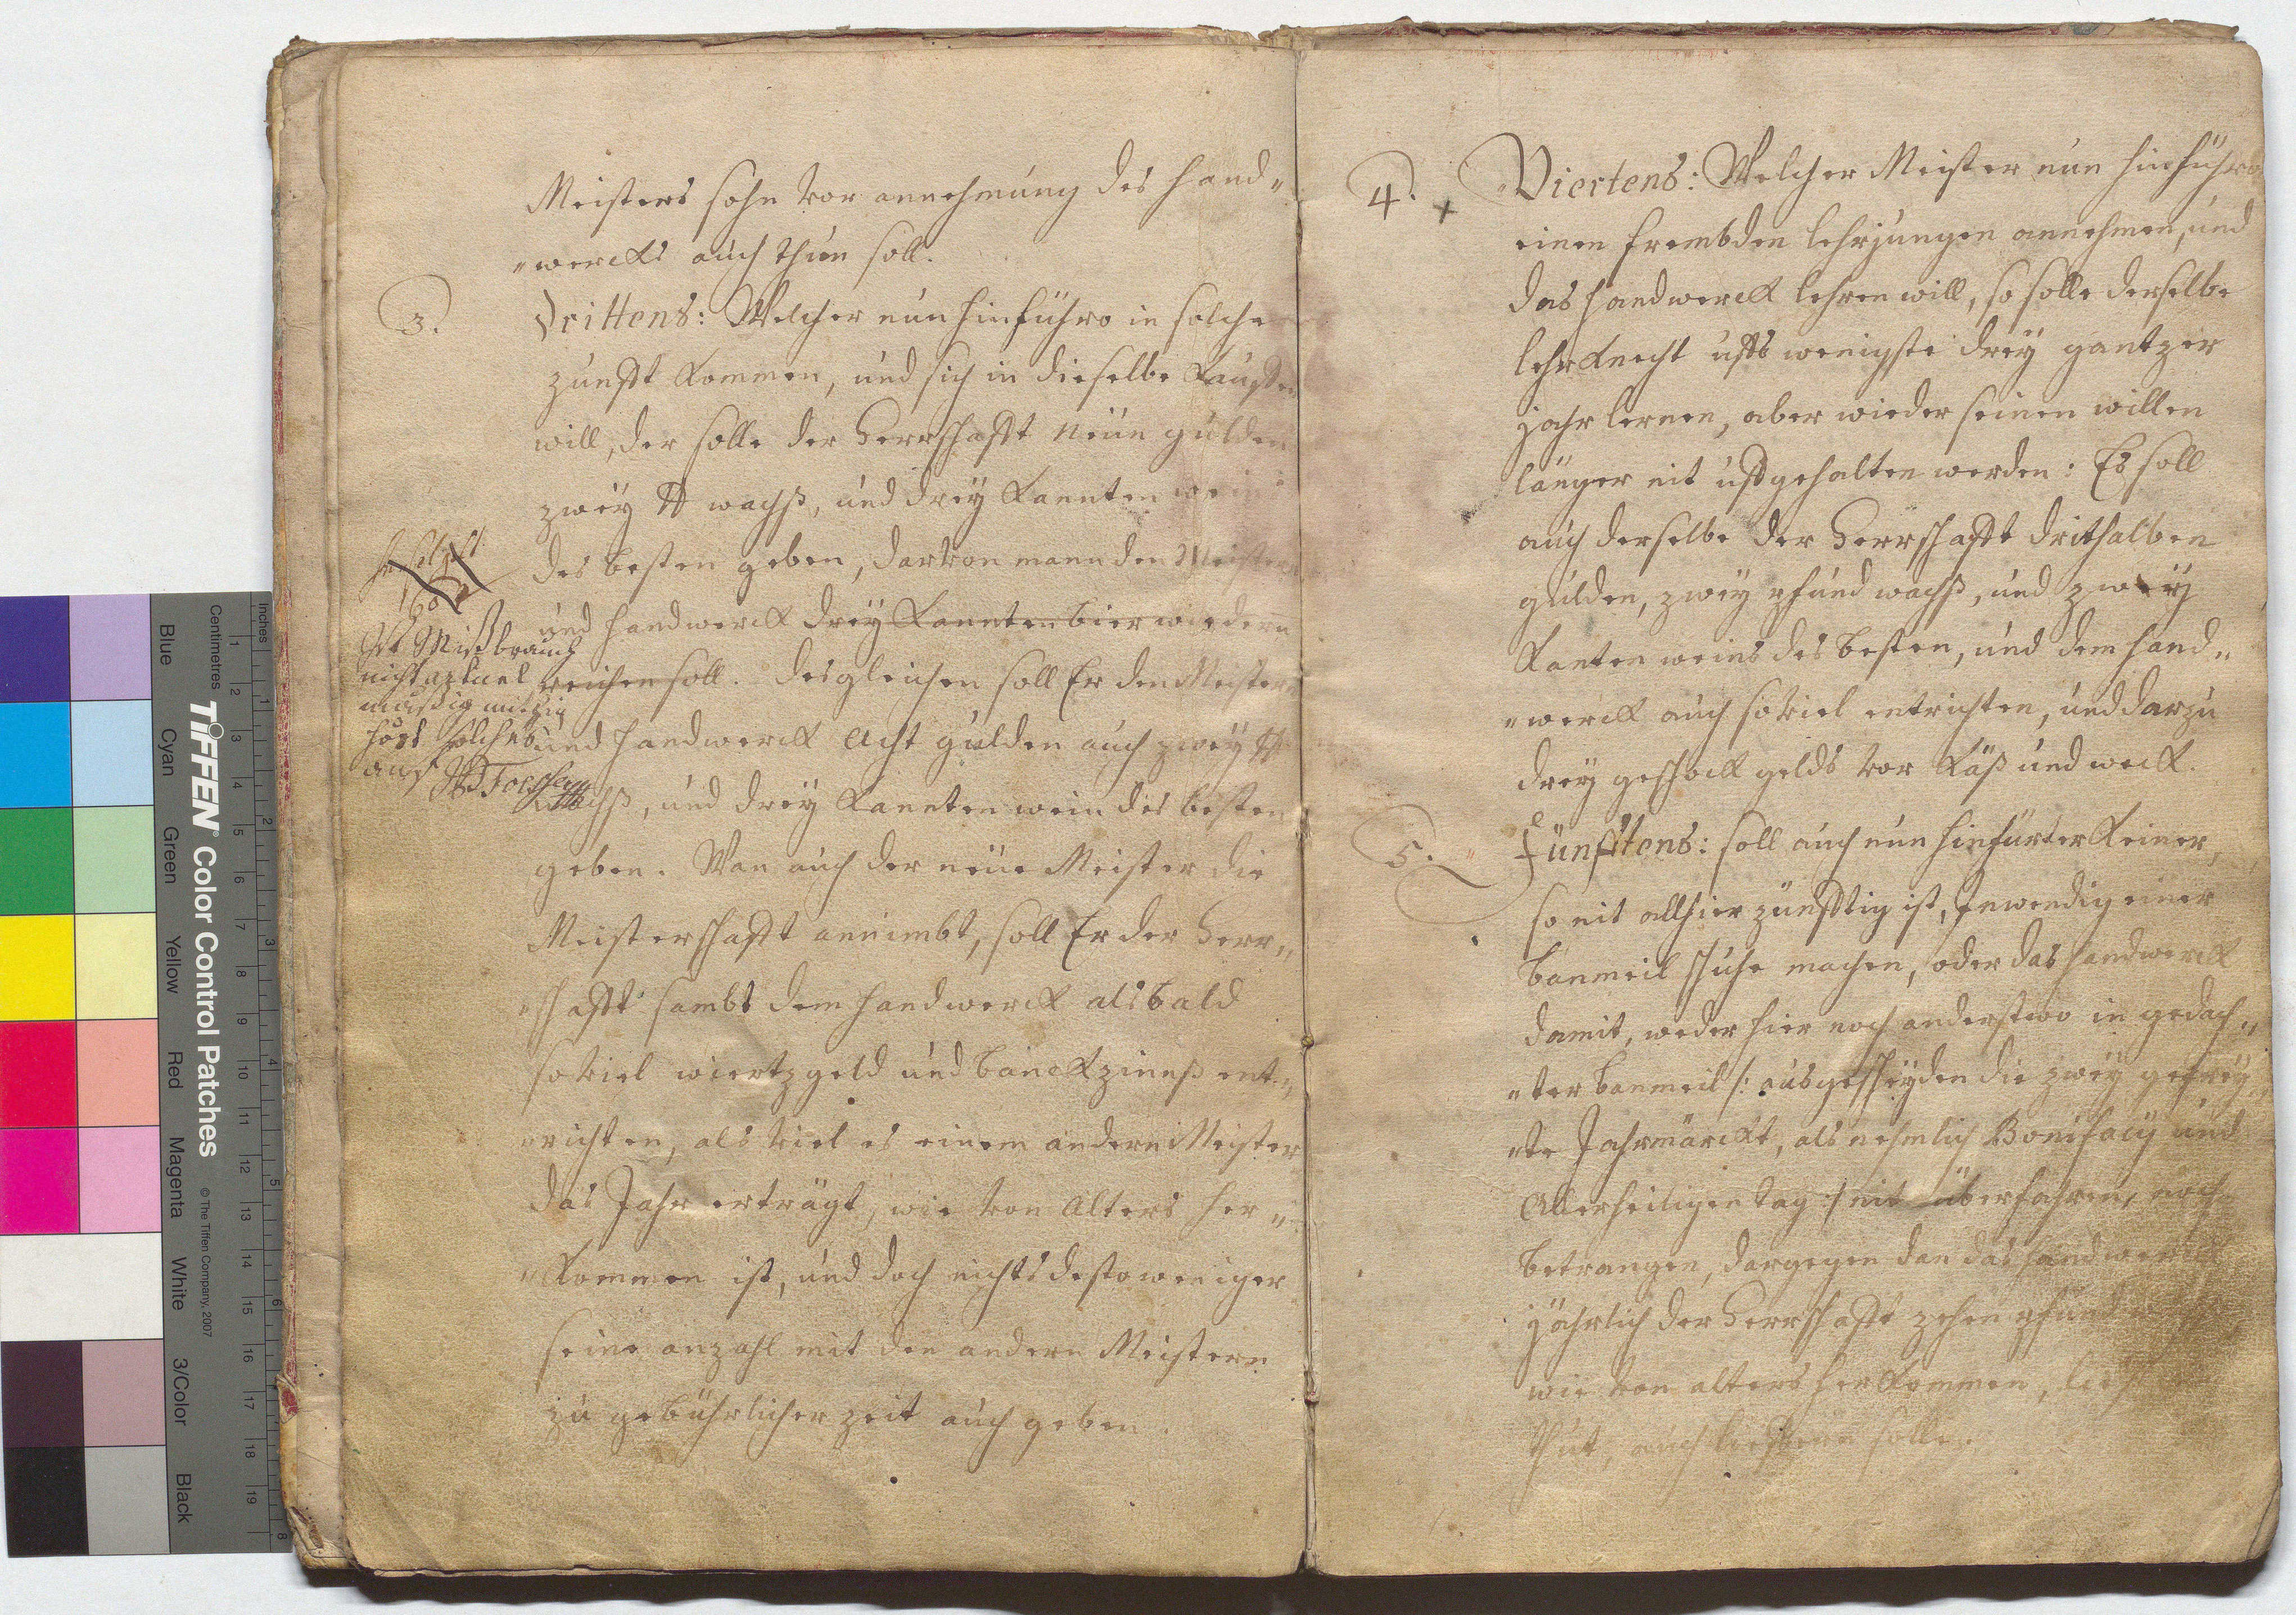 Meisters sohn vor annehmung des hand„
„wercks auch thun soll.
3.
Drittens: Welcher nun hinführo in solche
zunfft kommen, und sich in dieselbe kauffen
will, der solle der Herrschafft neün gulden
zweÿ ℔ wachß, und dreÿ kannten weins
des besten geben, darvon mann den Meistern
und handwerck dreÿ kannten bier wiederu
reichen soll. desgleichen soll Er den Meistern
und handwerck acht gulden auch zweÿ ℔
wachß, und dreÿ kannten wein des besten
geben. Wan auch der neüe Meister die
Meisterschafft annimbt, soll Er der Herr„
„schafft sambt dem handwerck alsbald
soviel wiertzgeld und banckzinnß ent„
„richten, als viel es einem andern Meister
das Jahr erträgt, wie von Alters her„
„kommen ist, und doch nichts destoweniger
seine anzahl mit den andern Meistern
zu gebührlicher zeit auch geben.
Ist Mißbrauch
nicht
mäßig
hört solches
auf
4. +
Viertens: Welcher Meister nun hinführo
einen frembden lehrjungen annehmen, und
das handwerck lehren will, so solle derselbe
lehrknecht uffs wenigste dreÿ gantzer
jahr lernen, aber wieder seinen willen
länger nit uffgehalten werden: Es soll
auch derselbe der Herrschafft drithalben
gulden, zweÿ pfund wachß, und zweÿ
kanten weins des besten, und dem hand„
„werck auch soviel entrichten, und darzu
dreÿ geschock gelds vor Käß und weck.
5.
Fünfftens: soll auch nun hinfürter keiner,
so nit allhier zünfftig ist, Inwendig einer
banmeil schuhe machen, oder das handwerck
damit, weder hier noch anderstwo in gedach„
„ter banmeil /: ausgescheÿden die zweÿ gefreÿ„
„te Jahrmärckt, als nehmlich Bonifacÿ und
Allerheiligen tag :/ nit überfahren, noch
betrangen, dargegen dan das handwerck
jährlich der Herrschafft zehen pfund
wie von alters herkommen,
thut, auch lieffern solle.
Inches
Centimetres
TIFFEN® Color Control Patches
© The Tiffen Company, 2007
Blue
Cyan
Green
Yellow
Red
Magenta
White
3/Color
Black
1 2 3 4 5 6 7 8 9 10 11 12 13 14 15 16 17 18 19
1 2 3 4 5 6 7 8